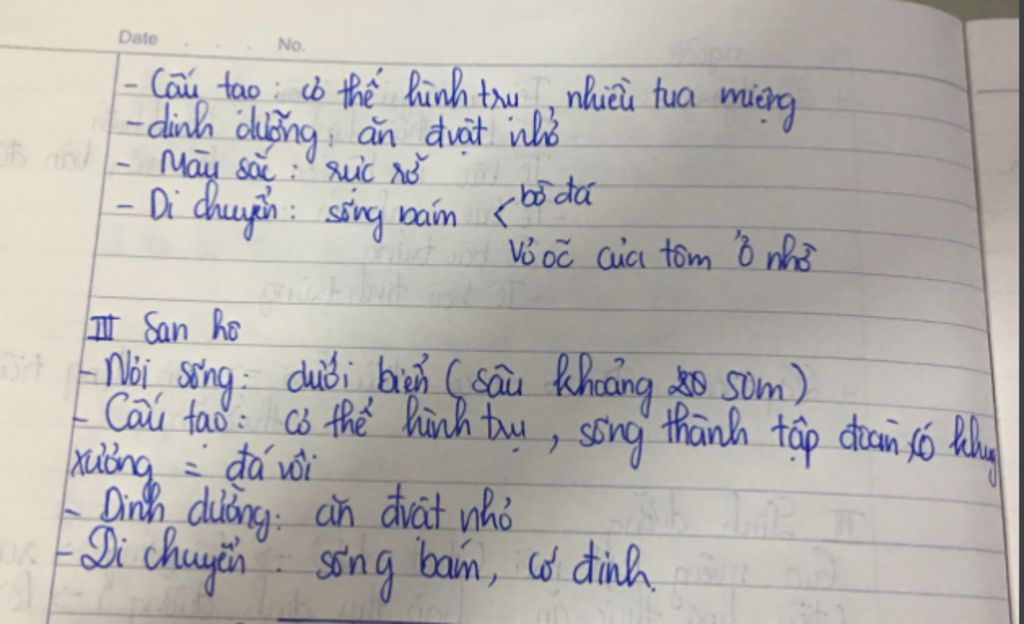 Date . . . No.
- Cấu tạo : cơ thể hình trụ, nhiều tua miệng
- dinh dưỡng : ăn đvật nhỏ
- Màu sắc : rực rỡ
- Di chuyển : sống bám < bờ đá
vỏ ốc của tôm ở nhờ
III San hô
- Nơi sống : dưới biển ( sâu khoảng 50m )
- Cấu tạo : cơ thể hình trụ, sống thành tập đoàn có khung
xương = đá vôi
- Dinh dưỡng : ăn đvật nhỏ
- Di chuyển : sống bám, cố định.